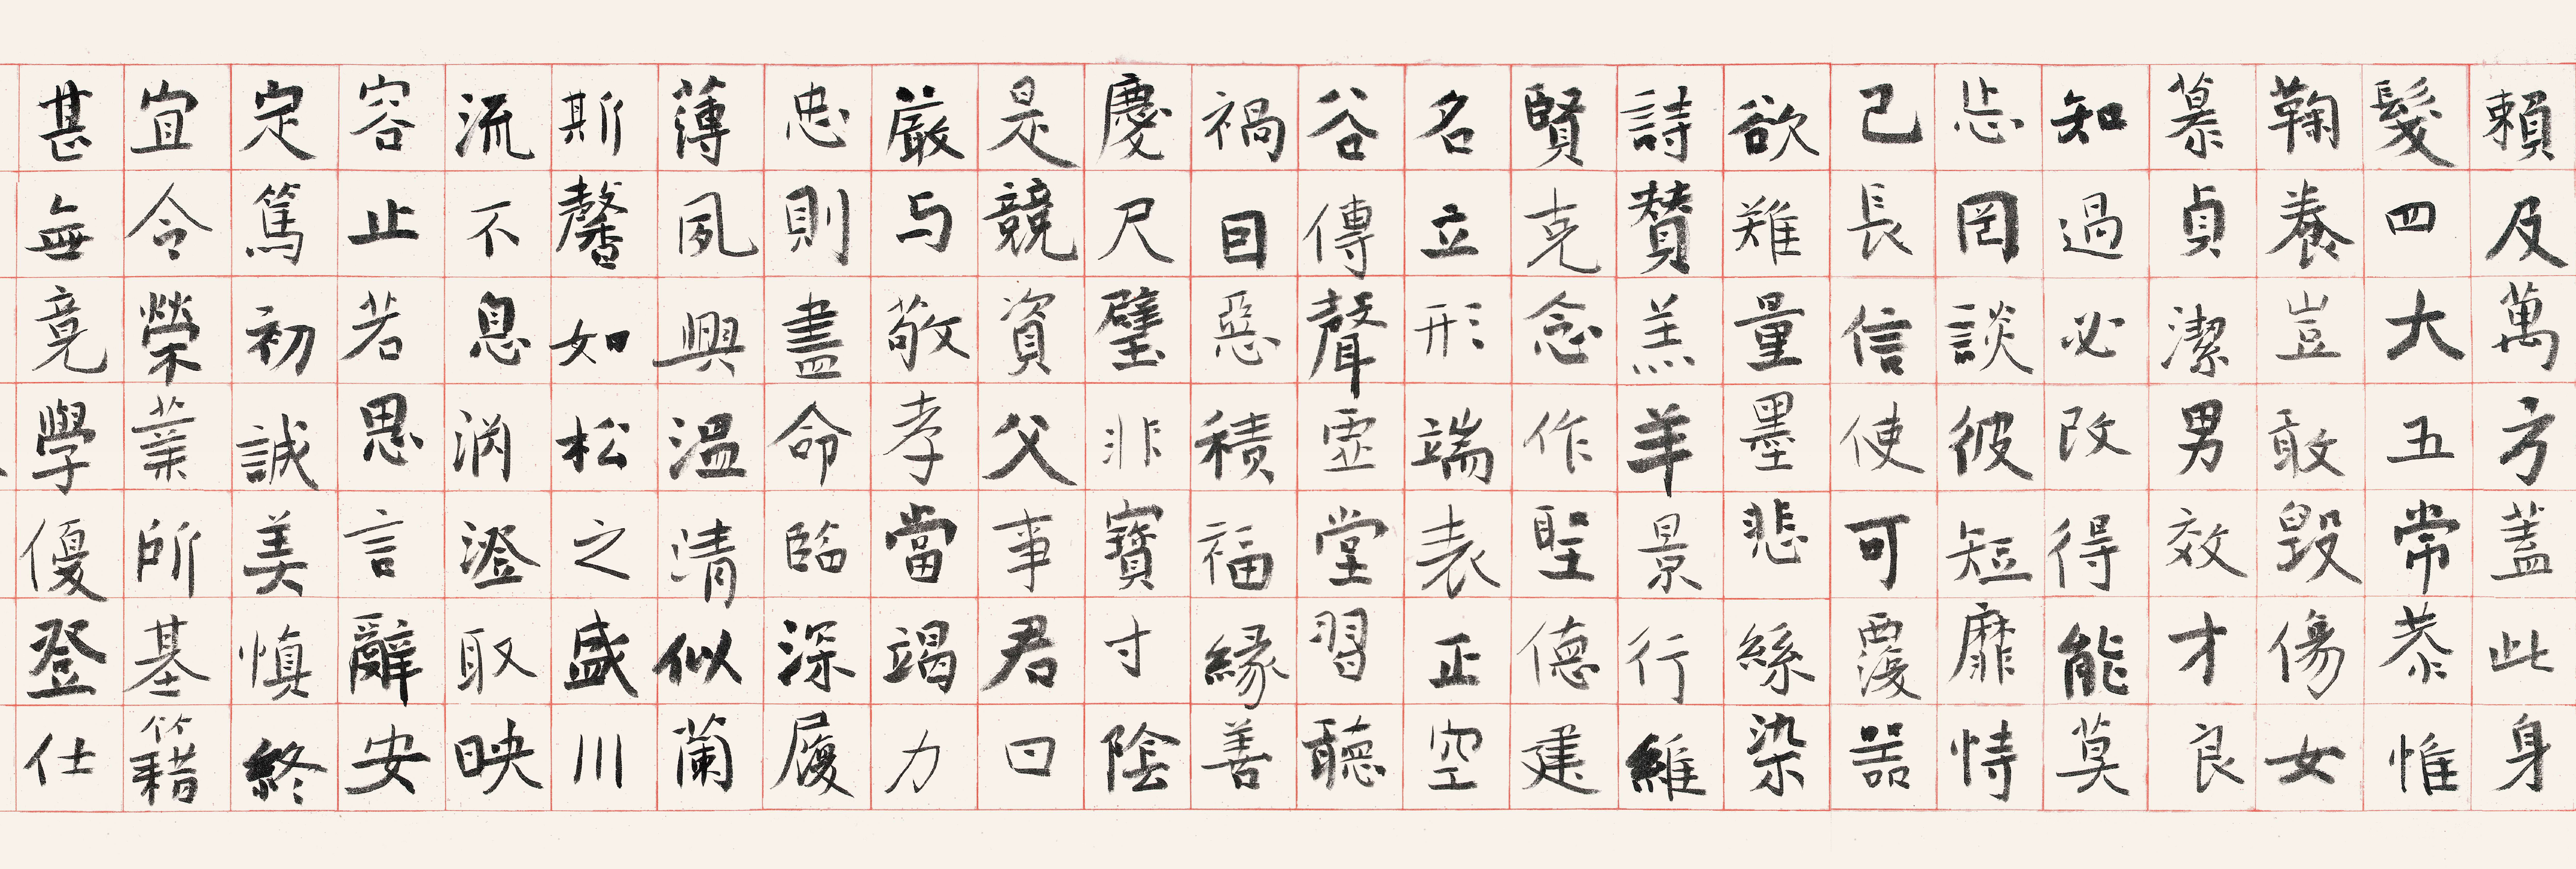 賴及萬方蓋此身
髮四大五常恭惟
鞠養豈敢毀傷女
慕貞潔男效才良
知過必改得能莫
忘罔談彼短靡恃
己長信使可覆器
欲難量墨悲絲染
詩賛羔羊景行維
賢克念作聖德建
名立形端表正空
谷傳聲虛堂習聽
禍因惡積福緣善
慶尺璧非寶寸陰
是競資父事君曰
厳与敬孝當竭力
忠則盡命臨深履
薄夙興溫清似蘭
斯馨如松之盛川
流不息渊澄取映
容止若思言辭安
定篤初誠美慎終
宜令榮業所基籍
甚無竟學優登仕